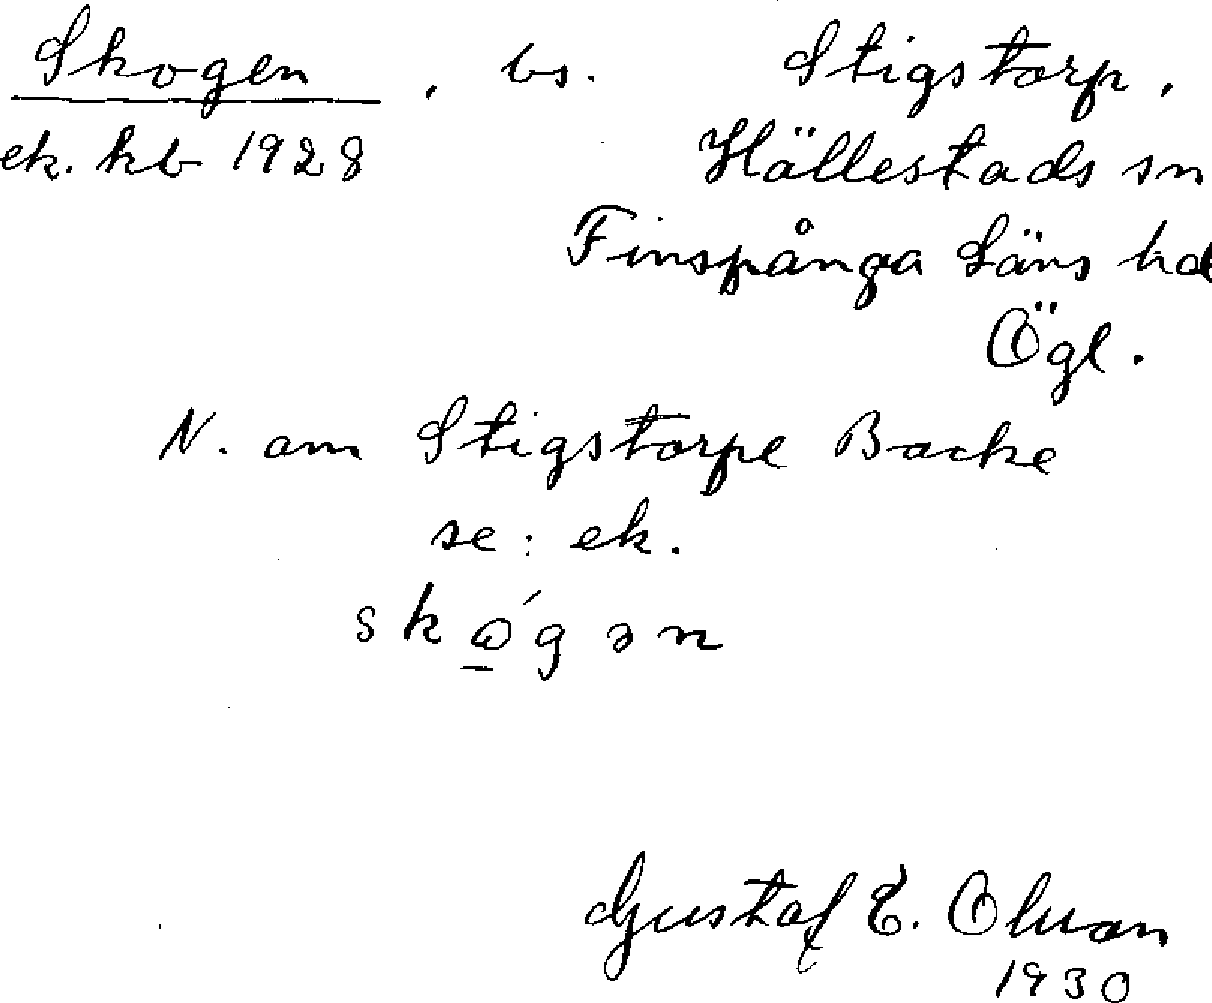 Skogen, bs. Stigstorp,
ek. kb 1928 Hällestads sn
Finspånga Läns hd
Ögl.
N. om Stigstorpe Backe
se: ek.
skǫ́gən
Gustaf E. Olsson
1930